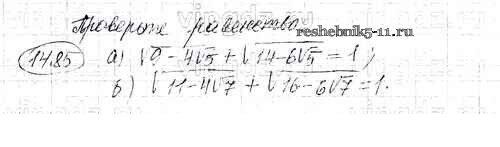 Проверьте равенство
reshebnik5-11.ru
1485 а) √9-4√5 + √14-6√5 = 1;
б) √11-4√7 + √16-6√7 = 1.